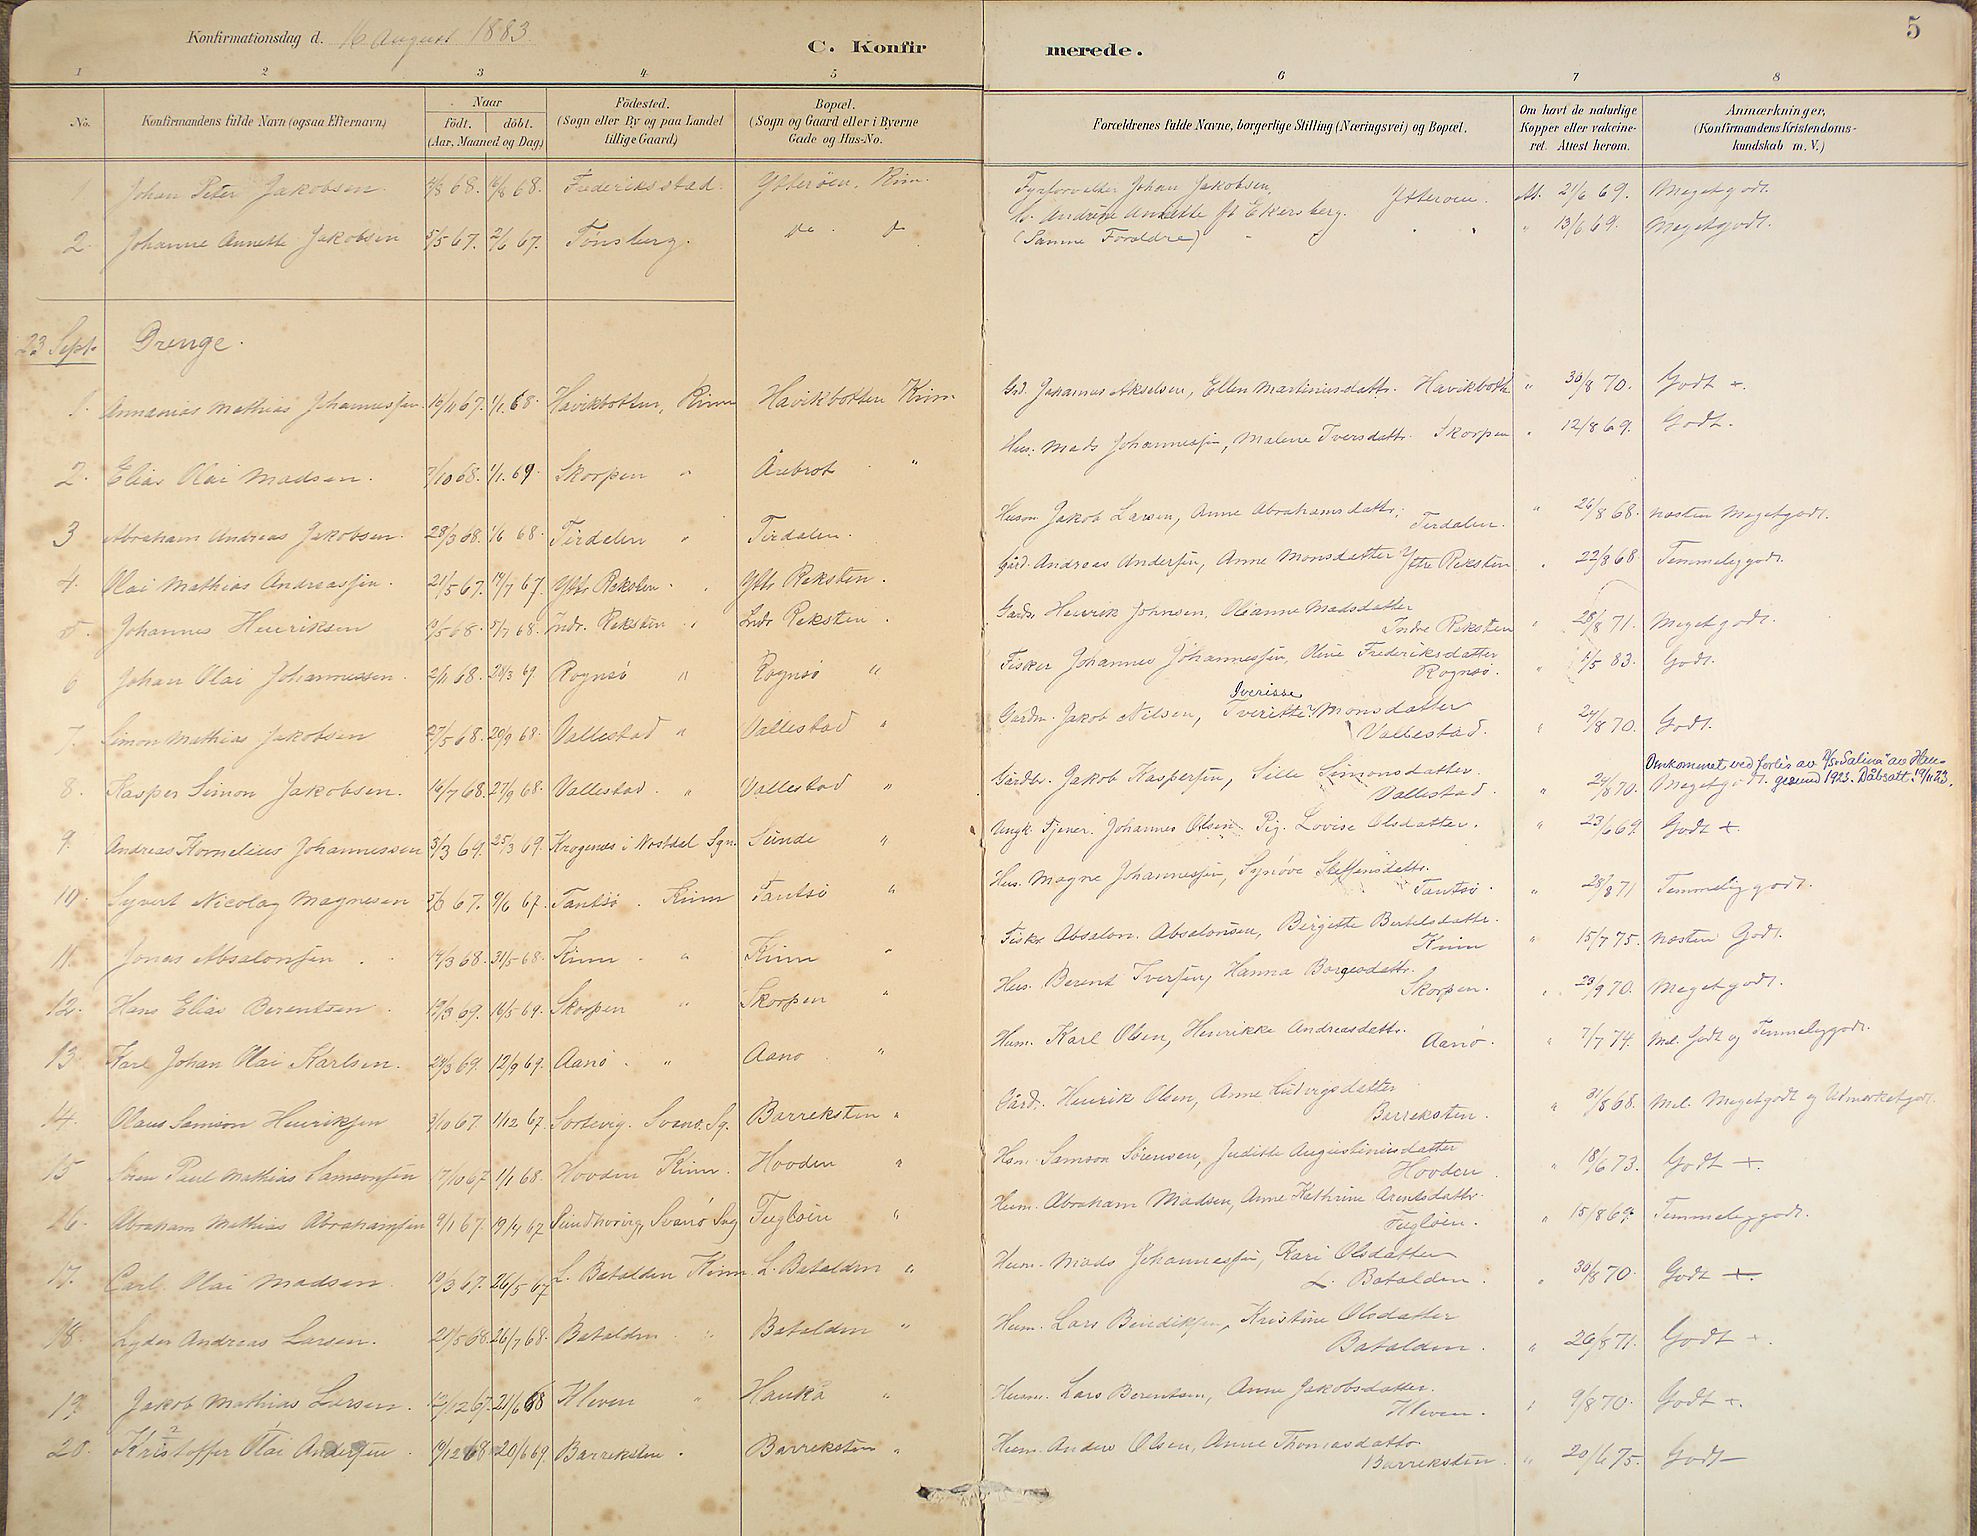 5
Konfirmationsdag d. 16 August 1883.
C. Konfir merede.
1 2 3 4 5 6 7 8
No. Konfirmandens fulde Navn (ogsaa Efternavn) Naar födt. döbt. (Aar, Maaned og Dag) Födested. (Sogn eller By og paa Landet tillige Gaard) Bopæl. (Sogn og Gaard eller i Byerne Gade og Hus-No. Forældrenes fulde Navne, borgerlige Stilling (Næringsvei) og Bopæl. Om havt de naturlige Kopper eller vakcineret. Attest herom. Anmærkninger, (Konfirmandens Kristendomskundskab m. V.)
1. Johan Peter Jakobsen. 68. 68. Frederiksstad. Ytterøen, Kin. Fyrforvalter Johan Jakobsen, h. Andrine Annette ft Ekersberg. Ytterøen. At. 21/6 69. Meget godt.
2. Johanne Annette Jakobsen 5/5 67. 2/6 67. Tønsberg. do. do (Samme Forældre) " 13/6 69. Meget godt.
23 Sept. Drenge.
1. Annanias Mathias Johannessen. 16/11 67. 1/1 68. Havikbotten, Kinn Havikbotten Kinn. Grd. Johannes Akselsen, Ellen Martinusdattr. Havikbott. " 30/8 70. Godt +.
2. Elias Olai Madsen. 7/10 68. 1/1 69. Skorpen " Årebrot " Hus. Mads Johannessen, Malene Iversdattr. Skorpen " 12/8 69. Godt.
3 Abraham Andreas Jakobsen. 28/3 68. 1/6 68. Tirdalen " Tirdalen. Husm. Jakob Larsen, Anne Abrahamsdattr; Tirdalen. " 26/8 68. næsten Meget godt.
4. Olai Mathias Andreassen. 21/5 67. 14/7 67. Yttr Reksten. Yttr Reksten. Gård. Andreas Andersen, Anne Monsdatter Ytre Reksten " 22/8 68 Temmelig godt.
5. Johannes Henriksen 68. 5/7 68. Indr. Reksten " Indr Reksten. Gårdr. Henrik Johnsen, Olianne Madsdatter Indre Reksten " 28/8 71. Meget godt.
6 Johan Olai Johannessen. 2/11 68. 29/3 69. Rognsø " Rognsø " Fisker Johannes Johannessen, Oline Frederiksdatter Rognsø. " 1/5 83. Godt.
7. Simon Mathias Jakobsen 27/5 68. 20/9 68. Vallestad " Vallestad " Gårdm. Jakob Nilsen, Iverikke Iverisse Monsdatter Vallestad. " 24/8 70. Godt.
8. Kasper Simon Jakobsen. 16/7 68. 27/9 68. Vallestad. " Vallestad " Gårdbr. Jakob Kaspersen, Sille Simonsdatter. Vallestad. " 24/8 70. Meget godt. Omkommet ved forlis av D/s "Salina" av Haugesund 1923. Dåbsatt. 19/11 23.
9. Andreas Kornelius Johannessen 3/3 69. 25/3 69. Krogenes i Nordal Sgn. Sunde " Ungk. Tjener. Johannes Olsen. Pig. Lovise Olsdatter. " 23/6 69. Godt +.
10. Syvert Nicolay Magnesen 67. 9/6 67. Tantsø. Kinn Tantsø " Hus. Magne Johannessen, Synøve Steffensdattr. Tantsø. " 28/8 71 Temmelig godt.
11. Jonas Absalonsen. 14/3 68. 31/5 68. Kinn. " Kinn " Fiskr Absalon Absalonsen, Birgitte Bertelsdattr. Kinn " 15/7 75. næsten Godt.
12. Hans Elias Berentsen. 19/3 69. 16/5 69. Skorpen " Skorpen " Hus. Berent Iversen, Hanna Borgesdattr. Skorpen. " 23/9 70. Meget godt.
13. Karl Johan Olai Karlsen. 24/3 69. 12/9 69. Aanø. " Aanø " Husm. Karl Olsen, Henrikke Andreasdattr. Aanø. " 7/7 74. Mel. Godt og Temmelig godt.
14. Olaus Samson Henriksen 3/10 67. 1/12 67. Sortevig. Svanø. Sg. Barreksten " Gård. Henrik Olsen, Anne Ludvigsdatter Barreksten. " 31/8 68. Mel. Meget godt og Udmærket godt.
15 Søren Paul Mathias Samsonsen 17/10 67 1/1 68. Hovden Kinn. Hovden " Hsm. Samson Sørensen, Judithe Augustinusdatter Hovden " 18/6 73. Godt +.
16. Abraham Mathias Abrahamsen 9/1 67. 19/4 67 Svanø Sog Fugløen " Husm. Abraham Madsen, Anne Kathrine Arentsdattr. Fugløen. " 15/8 69. Temmelig godt.
17. Carl Olai Madsen. 10/3 67. 26/5 67 L. Batalden Kinn L. Batalden " Husm. Mads Johannessen, Kari Olsdatter L. Batalden. " 30/8 70. Godt +.
18. Lyder Andreas Larsen. 21/5 68. 26/7 68. Batalden " Batalden " Husm. Lars Bendiksen, Kristine Olsdatter Batalden. " 26/8 71. Godt +.
19. Jakob Mathias Larsen. 12/12 67. 21/6 68 Kleven " Haukå " Husm. Lars Berentsen, Anne Jakobsdatter. Kleven. " 9/8 70. Godt +.
20. Kristoffer Olai Andersen. 19/12 68 20/6 69. Barreksten. Barreksten " Husm. Anders Olsen, Anne Thomasdattr. Barreksten. " 20/6 75. Godt